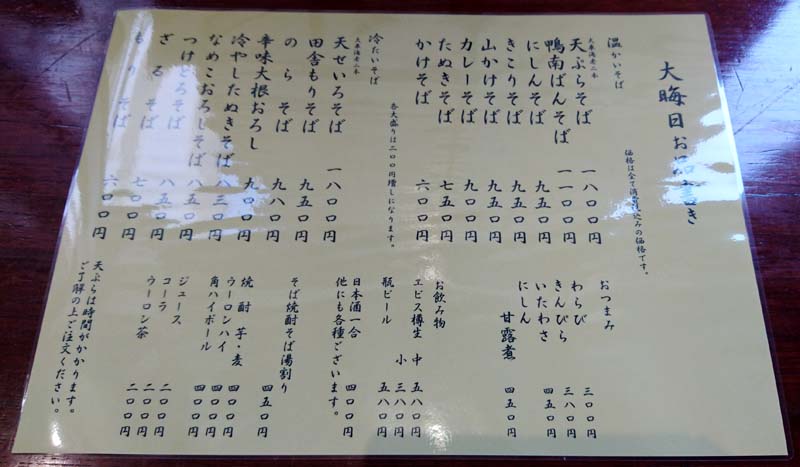 大晦日お品書き
価格は全て消費税込みの価格です。
温かいそば
大車海老二本
天ぷらそば 一八〇〇円
鴨南ばんそば 一一〇〇円
にしんそば 九五〇円
きこりそば 九五〇円
山かけそば 九五〇円
カレーそば 九五〇円
たぬきそば 七五〇円
かけそば 六〇〇円
各大盛りは二〇〇円増しになります。
冷たいそば
大車海老二本
天せいろそば 一八〇〇円
田舎もりそば 九五〇円
のらそば 九八〇円
辛味大根おろし 九〇〇円
冷やしたぬきそば 八三〇円
なめこおろしそば 八五〇円
つけとろそば 八五〇円
ざるそば 七〇〇円
もりそば 六〇〇円
おつまみ
わらび 三〇〇円
きんぴら 三八〇円
いたわさ 四五〇円
にしん甘露煮 四五〇円
お飲み物
エビス樽生 中 五八〇円
小 三八〇円
瓶ビール 五八〇円
日本酒一合 四〇〇円
他にも各種ございます。
そば焼酎そば湯割り 四五〇円
焼酎 芋・麦 四〇〇円
ウーロンハイ 四〇〇円
角ハイボール 四〇〇円
ジュース 二〇〇円
コーラ 二〇〇円
ウーロン茶 二〇〇円
天ぷらは時間がかかります。
ご了解の上ご注文ください。